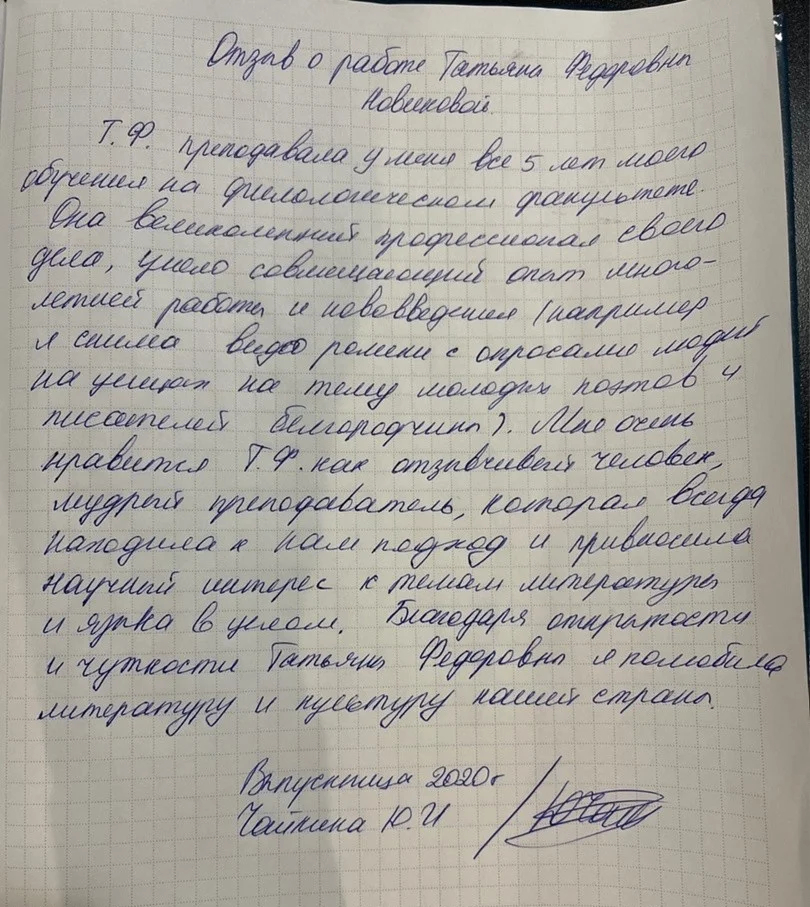 Отзыв о работе Татьяны Федоровны
Новиковой.
Т.Ф. преподавала у меня все 5 лет моего
обучения на филологическом факультете.
Она великолепный профессионал своего
дела, умело совмещающий опыт много-
летней работы и нововведения (например
я сняла видео ролики с опросами людей
на улицах на тему молодых поэтов и
писателей белгородчины). Мне очень
нравится Т.Ф. как отзывчивый человек,
мудрый преподаватель, которая всегда
находила к нам подход и привносила
научный интерес к темам литературы
и языка в целом. Благодаря открытости
и чуткости Татьяны Федоровны я полюбила
литературу и культуру нашей страны.
Выпускница 2020г
Чайкина Ю.И